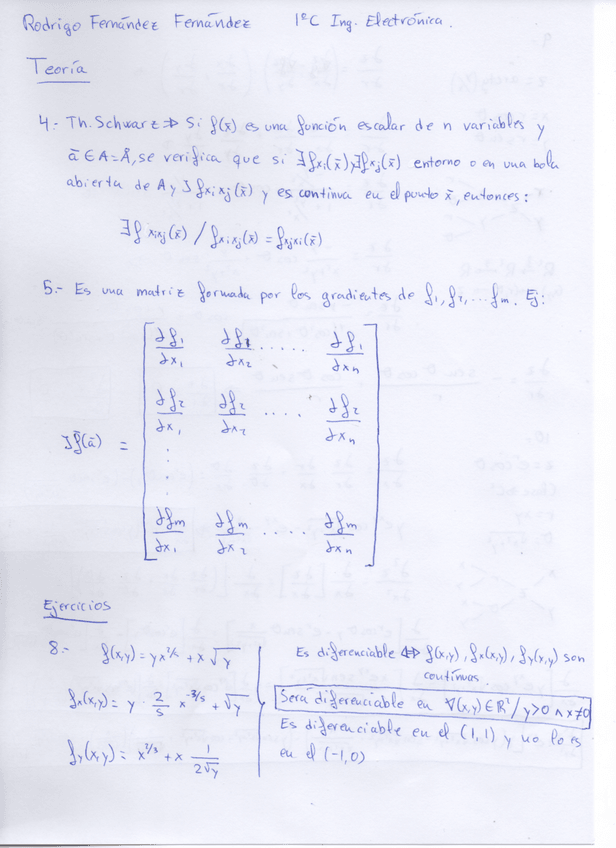 Rodrigo Fernández Fernández 1ºC Ing. Electrónica.
Teoría
4.- Th. Schwarz ⇒ Si f(x̄) es una función escalar de n variables y
ā ∈ A = Å, se verifica que si ∃fxi(x̄) y ∃fxj(x̄) entorno o en una bola
abierta de A y ∃fxixj(x̄) y es continua en el punto x̄, entonces:
∃f xixj(x̄) / fxixj(x̄) = fxjxi(x̄)
5.- Es una matriz formada por los gradientes de f₁, f₂, ... fm. Ej:
Jf̄(ā) =
∂f₁/∂x₁ ∂f₁/∂x₂ ..... ∂f₁/∂xn
∂f₂/∂x₁ ∂f₂/∂x₂ .... ∂f₂/∂xn
∂fm/∂x₁ ∂fm/∂x₂ ..... ∂fm/∂xn
Ejercicios
8.- f(x,y) = y x^2/5 + x √y
fx(x,y) = y · 2/5 x^-3/5 + √y
fy(x,y) = x^2/5 + x 1/2√y
Es diferenciable ⇔ f(x,y), fx(x,y), fy(x,y) son
continuas.
Será diferenciable en ∀(x,y) ∈ ℝ² / y>0 ∧ x≠0
Es diferenciable en el (1,1) y no lo es
en el (-1,0)